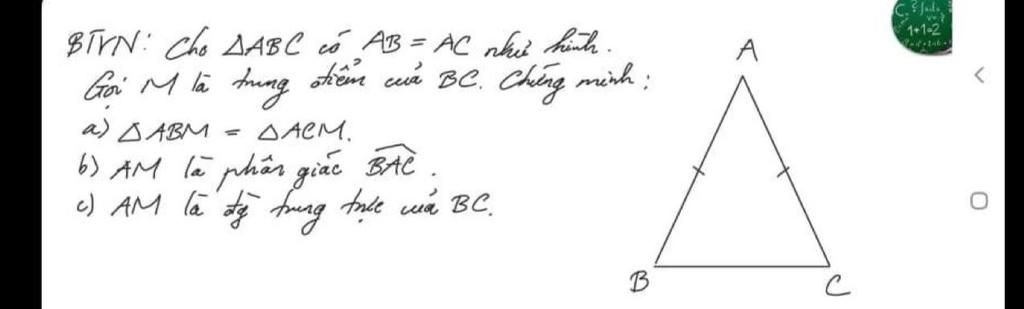 BTVN: Cho △ABC có AB = AC như hình.
Gọi M là trung điểm của BC. Chứng minh:
a) △ABM = △ACM.
b) AM là phân giác BAC.
c) AM là đg trung trực của BC.
A
B
C
1+1=2